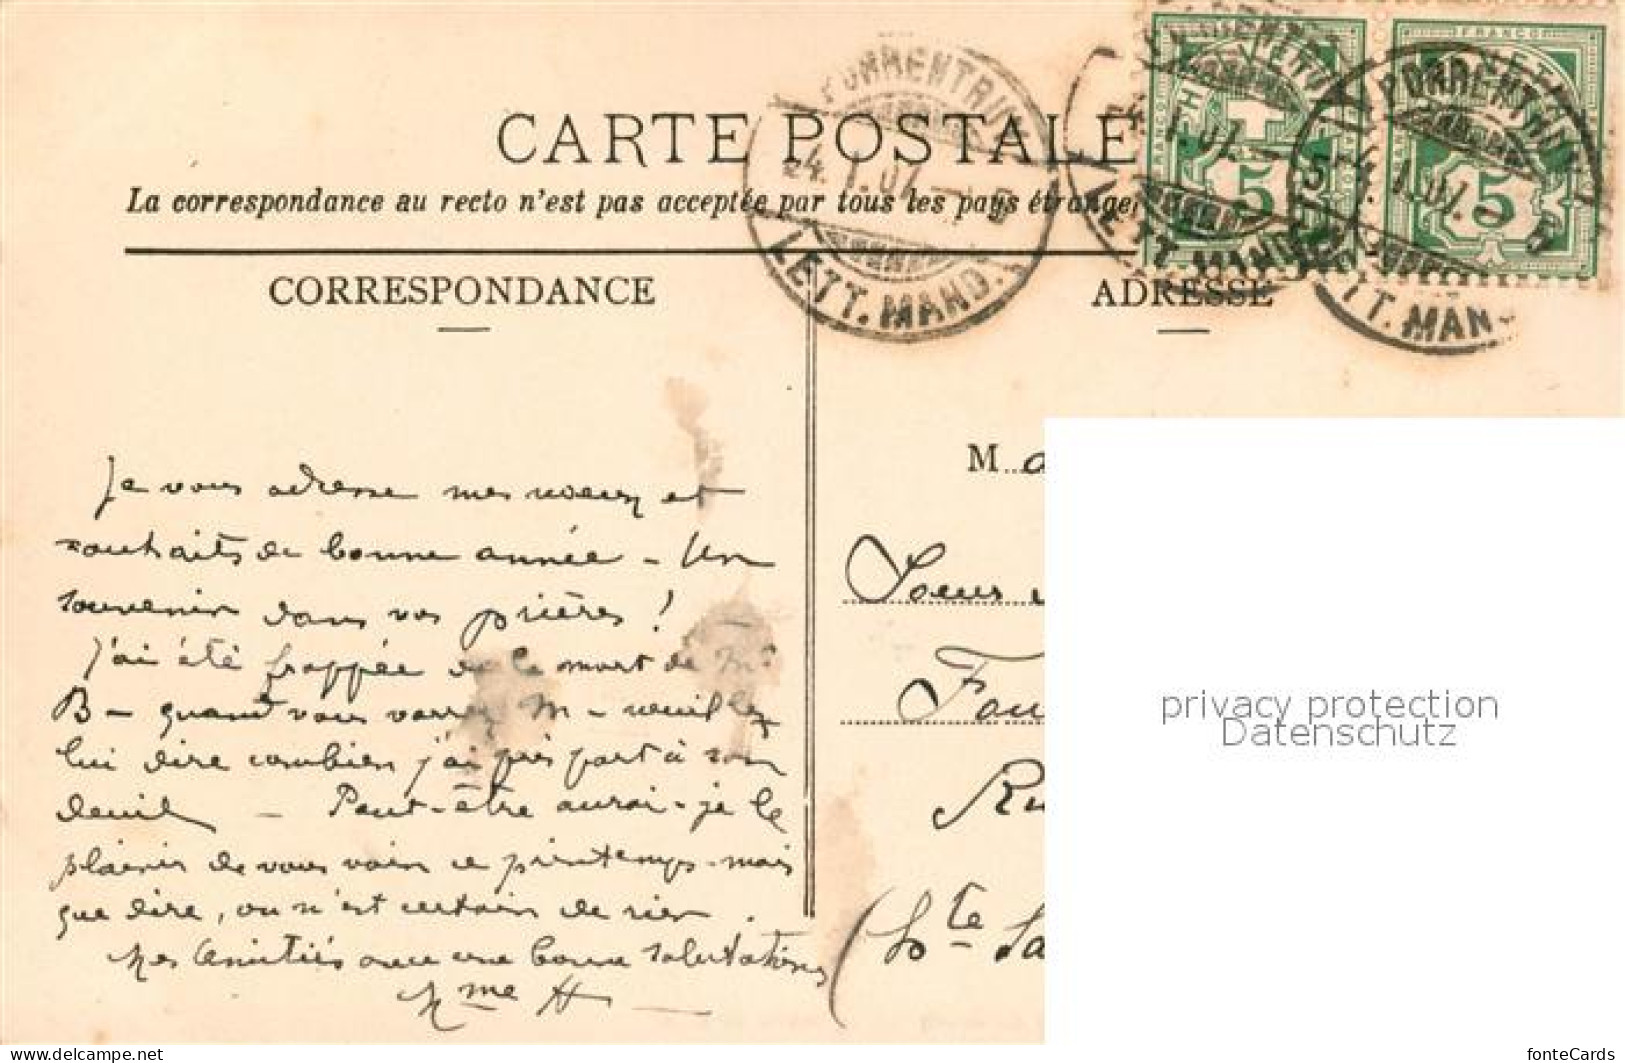 CARTE POSTALE
La correspondance au recto n'est pas acceptée par tous les pays étranger
CORRESPONDANCE
ADRESSE
PORRENTRUY
24.I.07.-5
LETT. MAND.
PORRENTRUY
24.I.07.-5
LETT. MAND.
PORRENTRUY
24.I.07.-5
LETT. MAN
FRANCO
5
FRANCO
5
M
Je vous adresse mes voeux et
souhaits de bonne année - Un
souvenir dans vos prières !
J'ai été frappée de la mort de Mr
B - quand vous verrez M - veuillez
lui dire combien j'ai pris part à son
deuil - Peut-être aurai-je le
plaisir de vous voir ce printemps - mais
que dire, on n'est certain de rien.
Mes amitiés avec une bonne salutations
Mme H
Soeur
Fou
Ru
(Hte Sa
privacy protection
Datenschutz
https://www.delcampe.net
fonteCards